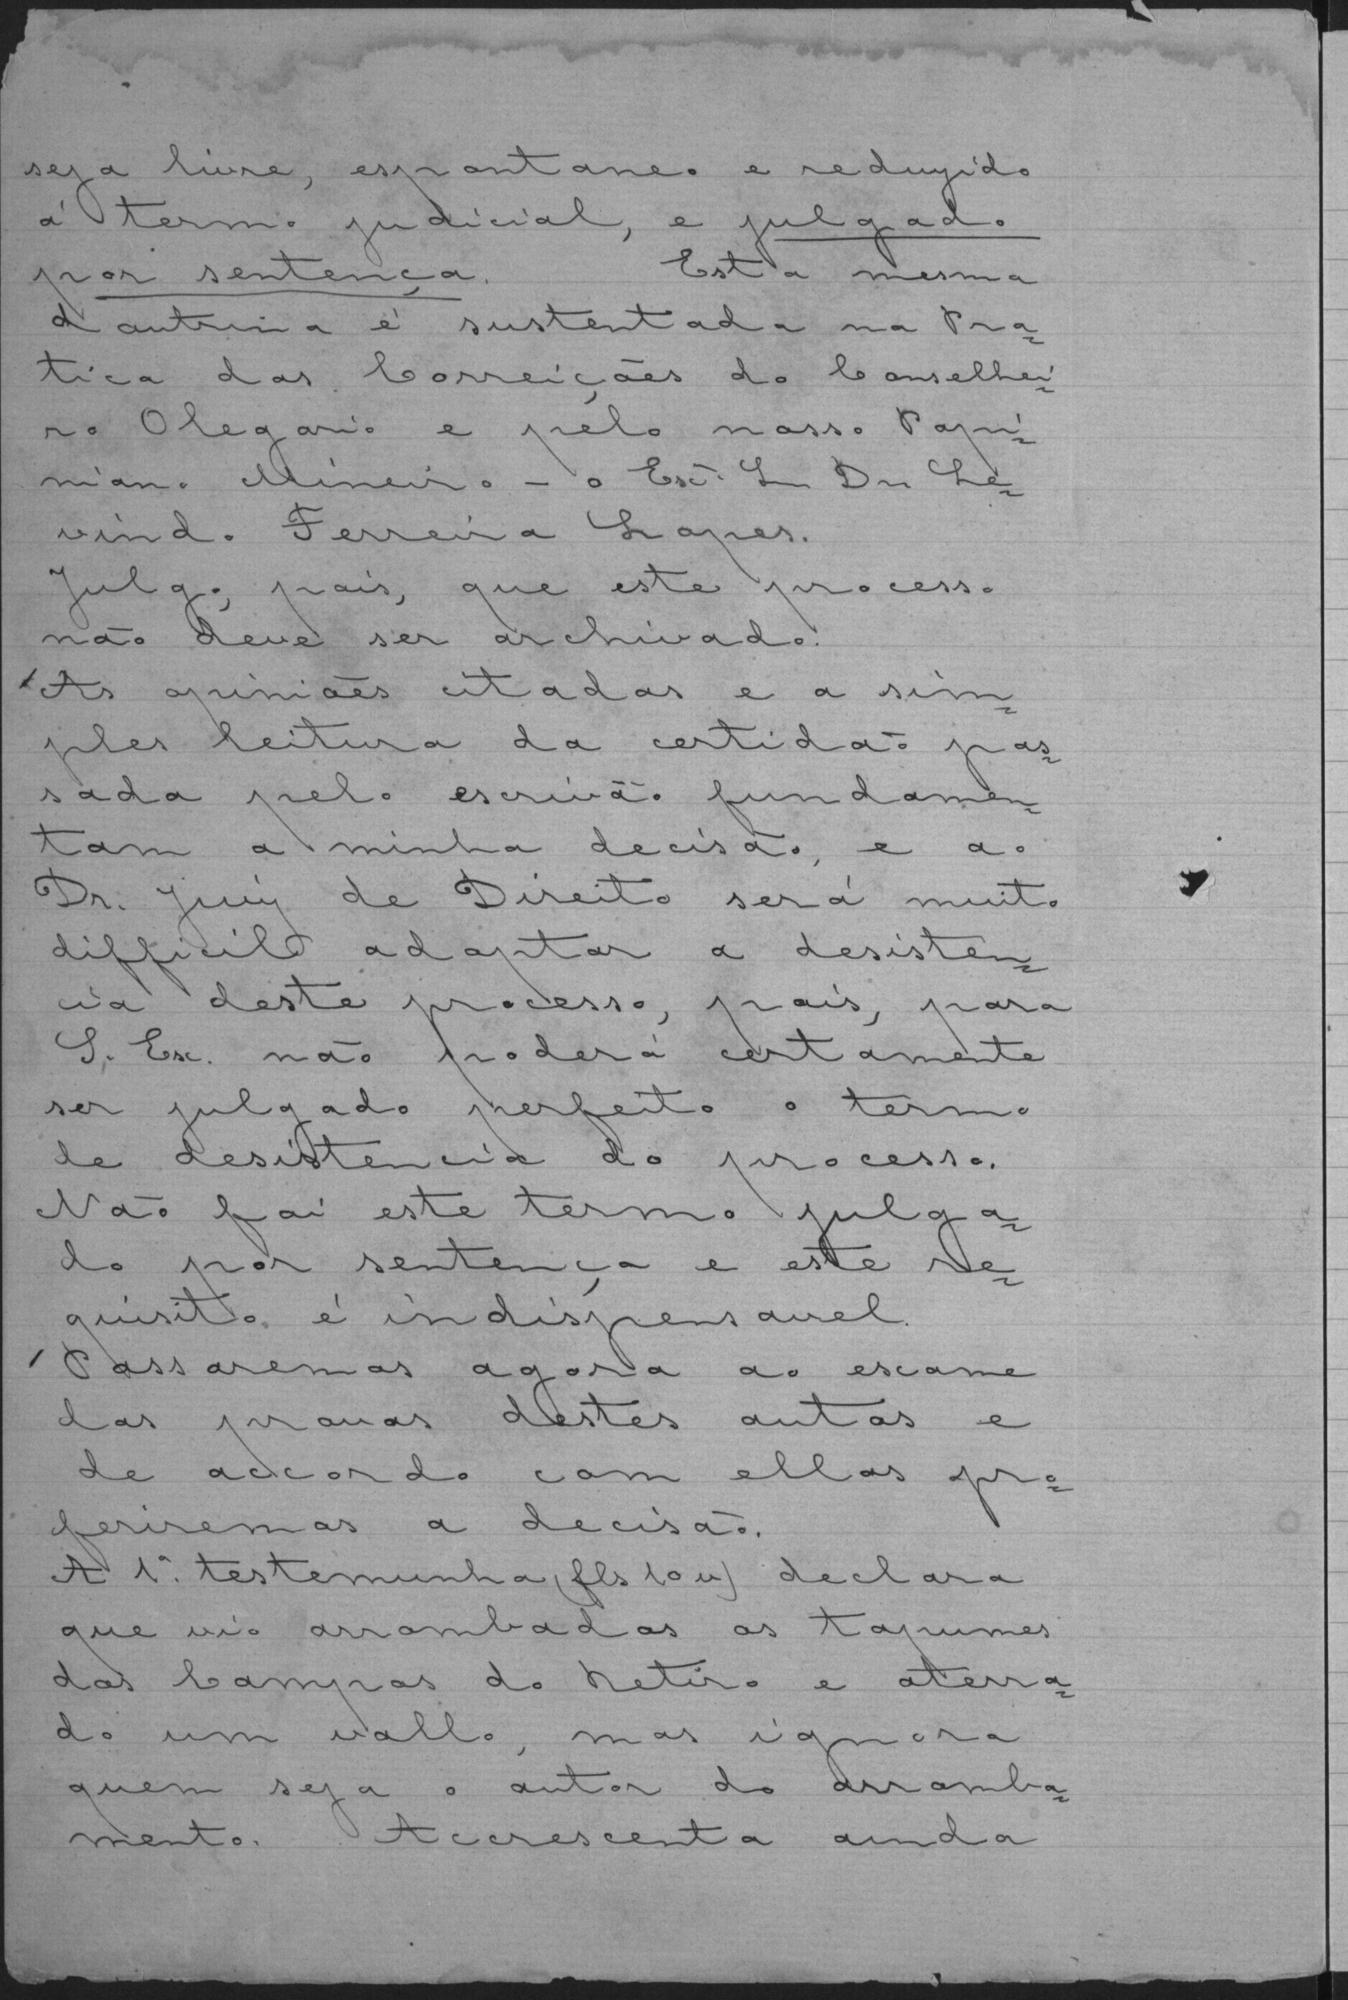 seja livre, espontaneo e reduzido
á termo judicial, e julgado
por sentença. Esta mesma
doutrina é sustentada na Pra=
tica das Correições do Conselhei=
ro Olegario e pelo nosso Papi=
niano Mineiro - o Exc.mo Sr. Dr. Le=
vindo Ferreira Lopes.
Julgo, pois, que este processo
não deve ser archivado.
As opiniões citadas e a sim=
ples leitura da certidão pas=
sada pelo escrivão fundamen=
tam a minha decisão, e ao
Dr. Juiz de Direito será muito
difficil adoptar a desisten=
cia deste processo, pois, para
S. Exc. não poderá certamente
ser julgado perfeito o termo
de desistencia do processo.
Não foi este termo julga=
do por sentença e este re=
quisito é indispensavel.
Passaremos agora ao exame
das provas destes autos e
de accordo com ellas pro=
feriremos a decisão.
A 1ª. testemunha (fls 10 v) declara
que vio arrombados os tapumes
dos Campos do Retiro e aterra=
do um vallo, mas ignora
quem seja o autor do arromba=
mento. Accrescenta ainda